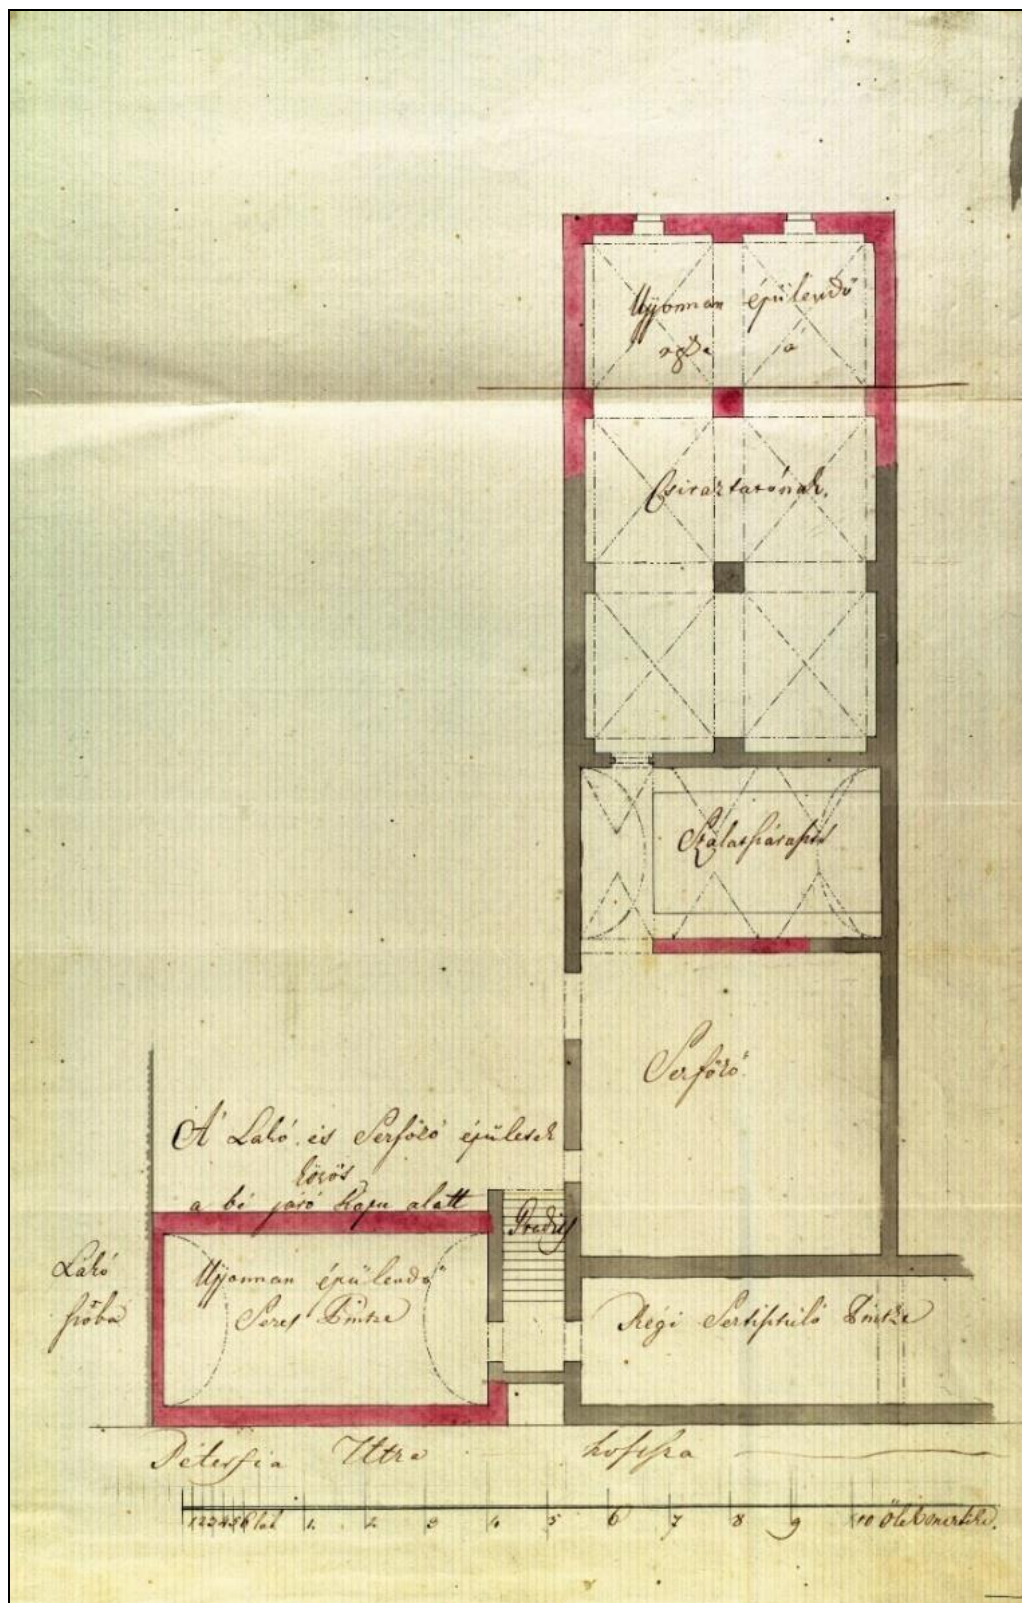 Ujjonnan épülendő
Csiraztatónak.
Szálasztó
Serfőző
A' Lakó és Serfőző épületek
közös
a bé járó Kapu alatt
Gradits
Lakó
szoba
Ujjonnan épülendő
Seres Pintze
Régi Sertisztuló Pintze
Péterfia Uttza hossza
1 2 3 4 5 6 láb 1. 2 3 4 5 6 7 8 9 10 Ölek mértéke.